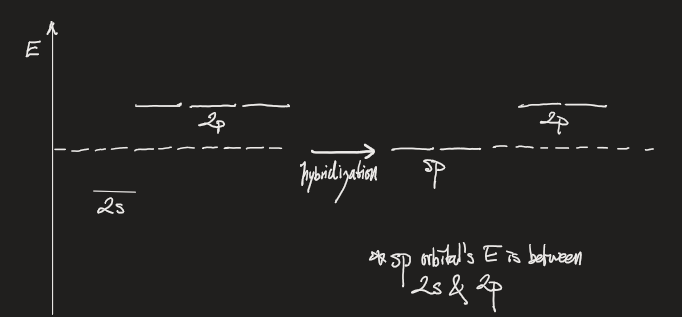 E
2p
2p
hybridization
sp
2s
* sp orbital's E is between
2s & 2p